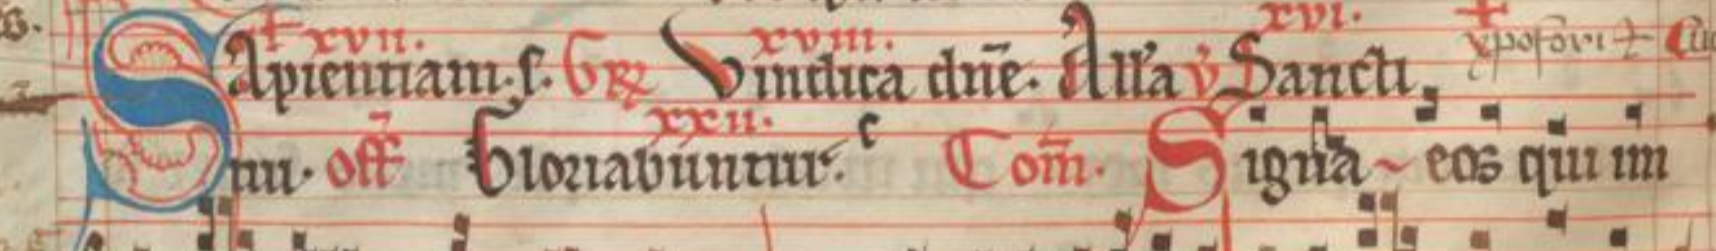 ✝ xvii. xviii. xvi. ✝
Sapientiam. s. Gr̄ Vindica dñe. All'a v̾ Sancti xpofori
tui. off̄ xxii. Gloriabuntur. c Com̄. Signa eos qui in